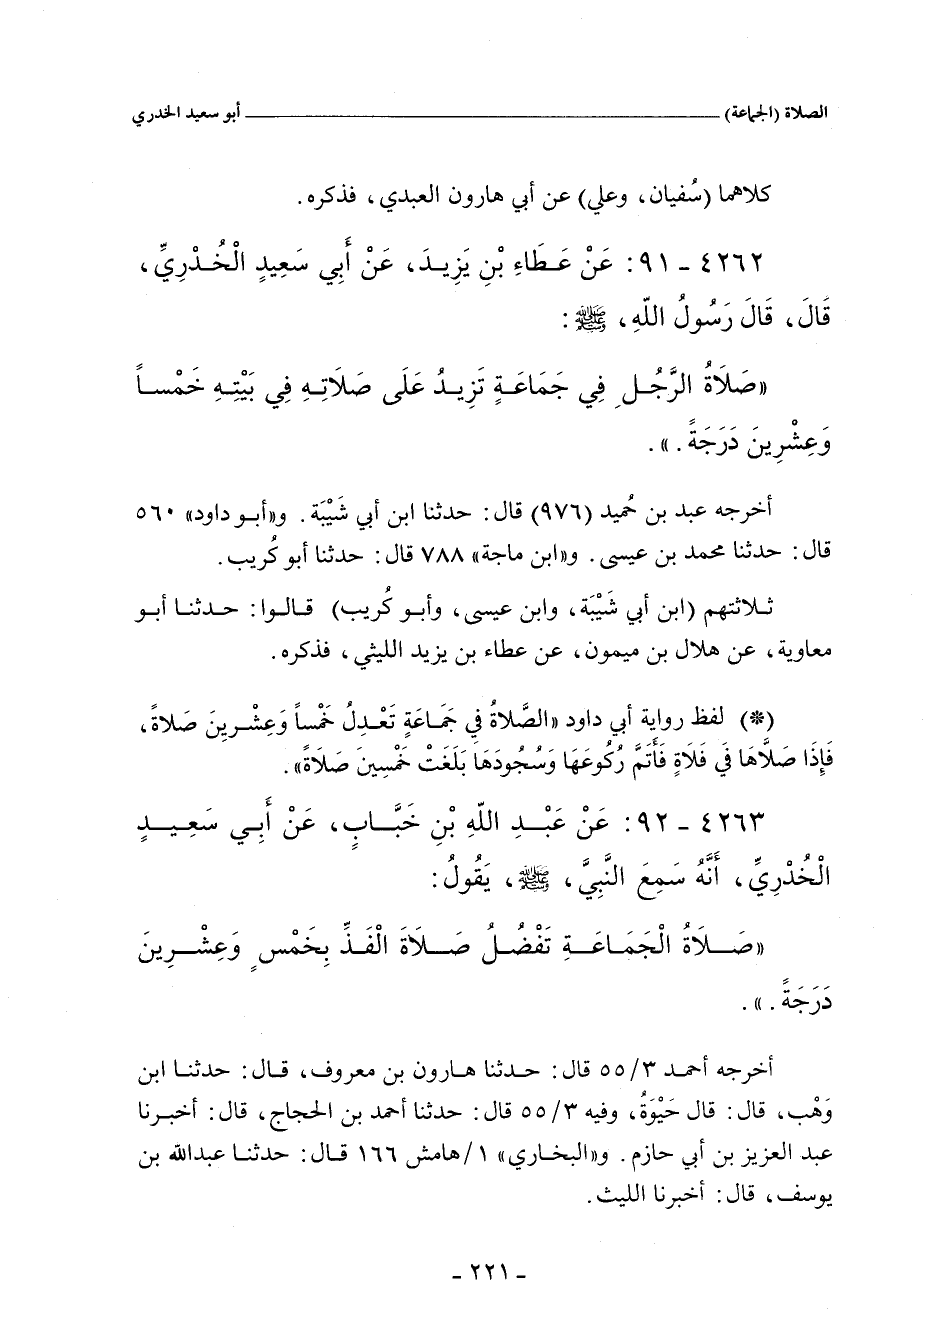 الصلاة (الجماعة) ــــــــــــــــــــ أبو سعيد الخدري
كلاهما (سُفيان، وعلي) عن أبي هارون العبدي، فذكره.
٤٢٦٢ - ٩١: عَنْ عَطَاءِ بْنِ يَزِيدَ، عَنْ أَبِي سَعِيدٍ الْخُدْرِيِّ،
قَالَ، قَالَ رَسُولُ اللّهِ، ﷺ:
«صَلَاةُ الرَّجُلِ فِي جَمَاعَةٍ تَزِيدُ عَلَى صَلَاتِهِ فِي بَيْتِهِ خَمْساً
وَعِشْرِينَ دَرَجَةً.».
أخرجه عبد بن حُميد (٩٧٦) قال: حدثنا ابن أبي شَيْبَة. و«أبو داود» ٥٦٠
قال: حدثنا محمد بن عيسى. و«ابن ماجة» ٧٨٨ قال: حدثنا أبو كُريب.
ثلاثتهم (ابن أبي شَيْبَة، وابن عيسى، وأبو كُريب) قالوا: حدثنا أبو
معاوية، عن هلال بن ميمون، عن عطاء بن يزيد الليثي، فذكره.
(*) لفظ رواية أبي داود «الصَّلاةُ في جَمَاعَةٍ تَعْدِلُ خَمْساً وَعِشْرِينَ صَلاةً،
فَإِذَا صَلَّاهَا فِي فَلَاةٍ فَأَتَمَّ رُكُوعَهَا وَسُجُودَهَا بَلَغَتْ خَمْسِينَ صَلاةً».
٤٢٦٣ - ٩٢: عَنْ عَبْدِ اللّهِ بْنِ خَبَّابٍ، عَنْ أَبِي سَعِيدٍ
الْخُدْرِيِّ، أَنَّهُ سَمِعَ النَّبِيَّ، ﷺ، يَقُولُ:
«صَلَاةُ الْجَمَاعَةِ تَفْضُلُ صَلَاةَ الْفَذِّ بِخَمْسٍ وَعِشْرِينَ
دَرَجَةً.».
أخرجه أحمد ٥٥/٣ قال: حدثنا هارون بن معروف، قال: حدثنا ابن
وَهْب، قال: قال حَيْوَةُ، وفيه ٥٥/٣ قال: حدثنا أحمد بن الحجاج، قال: أخبرنا
عبد العزيز بن أبي حازم. و«البخاري» ١/هامش ١٦٦ قال: حدثنا عبدالله بن
يوسف، قال: أخبرنا الليث.
- ٢٢١ -